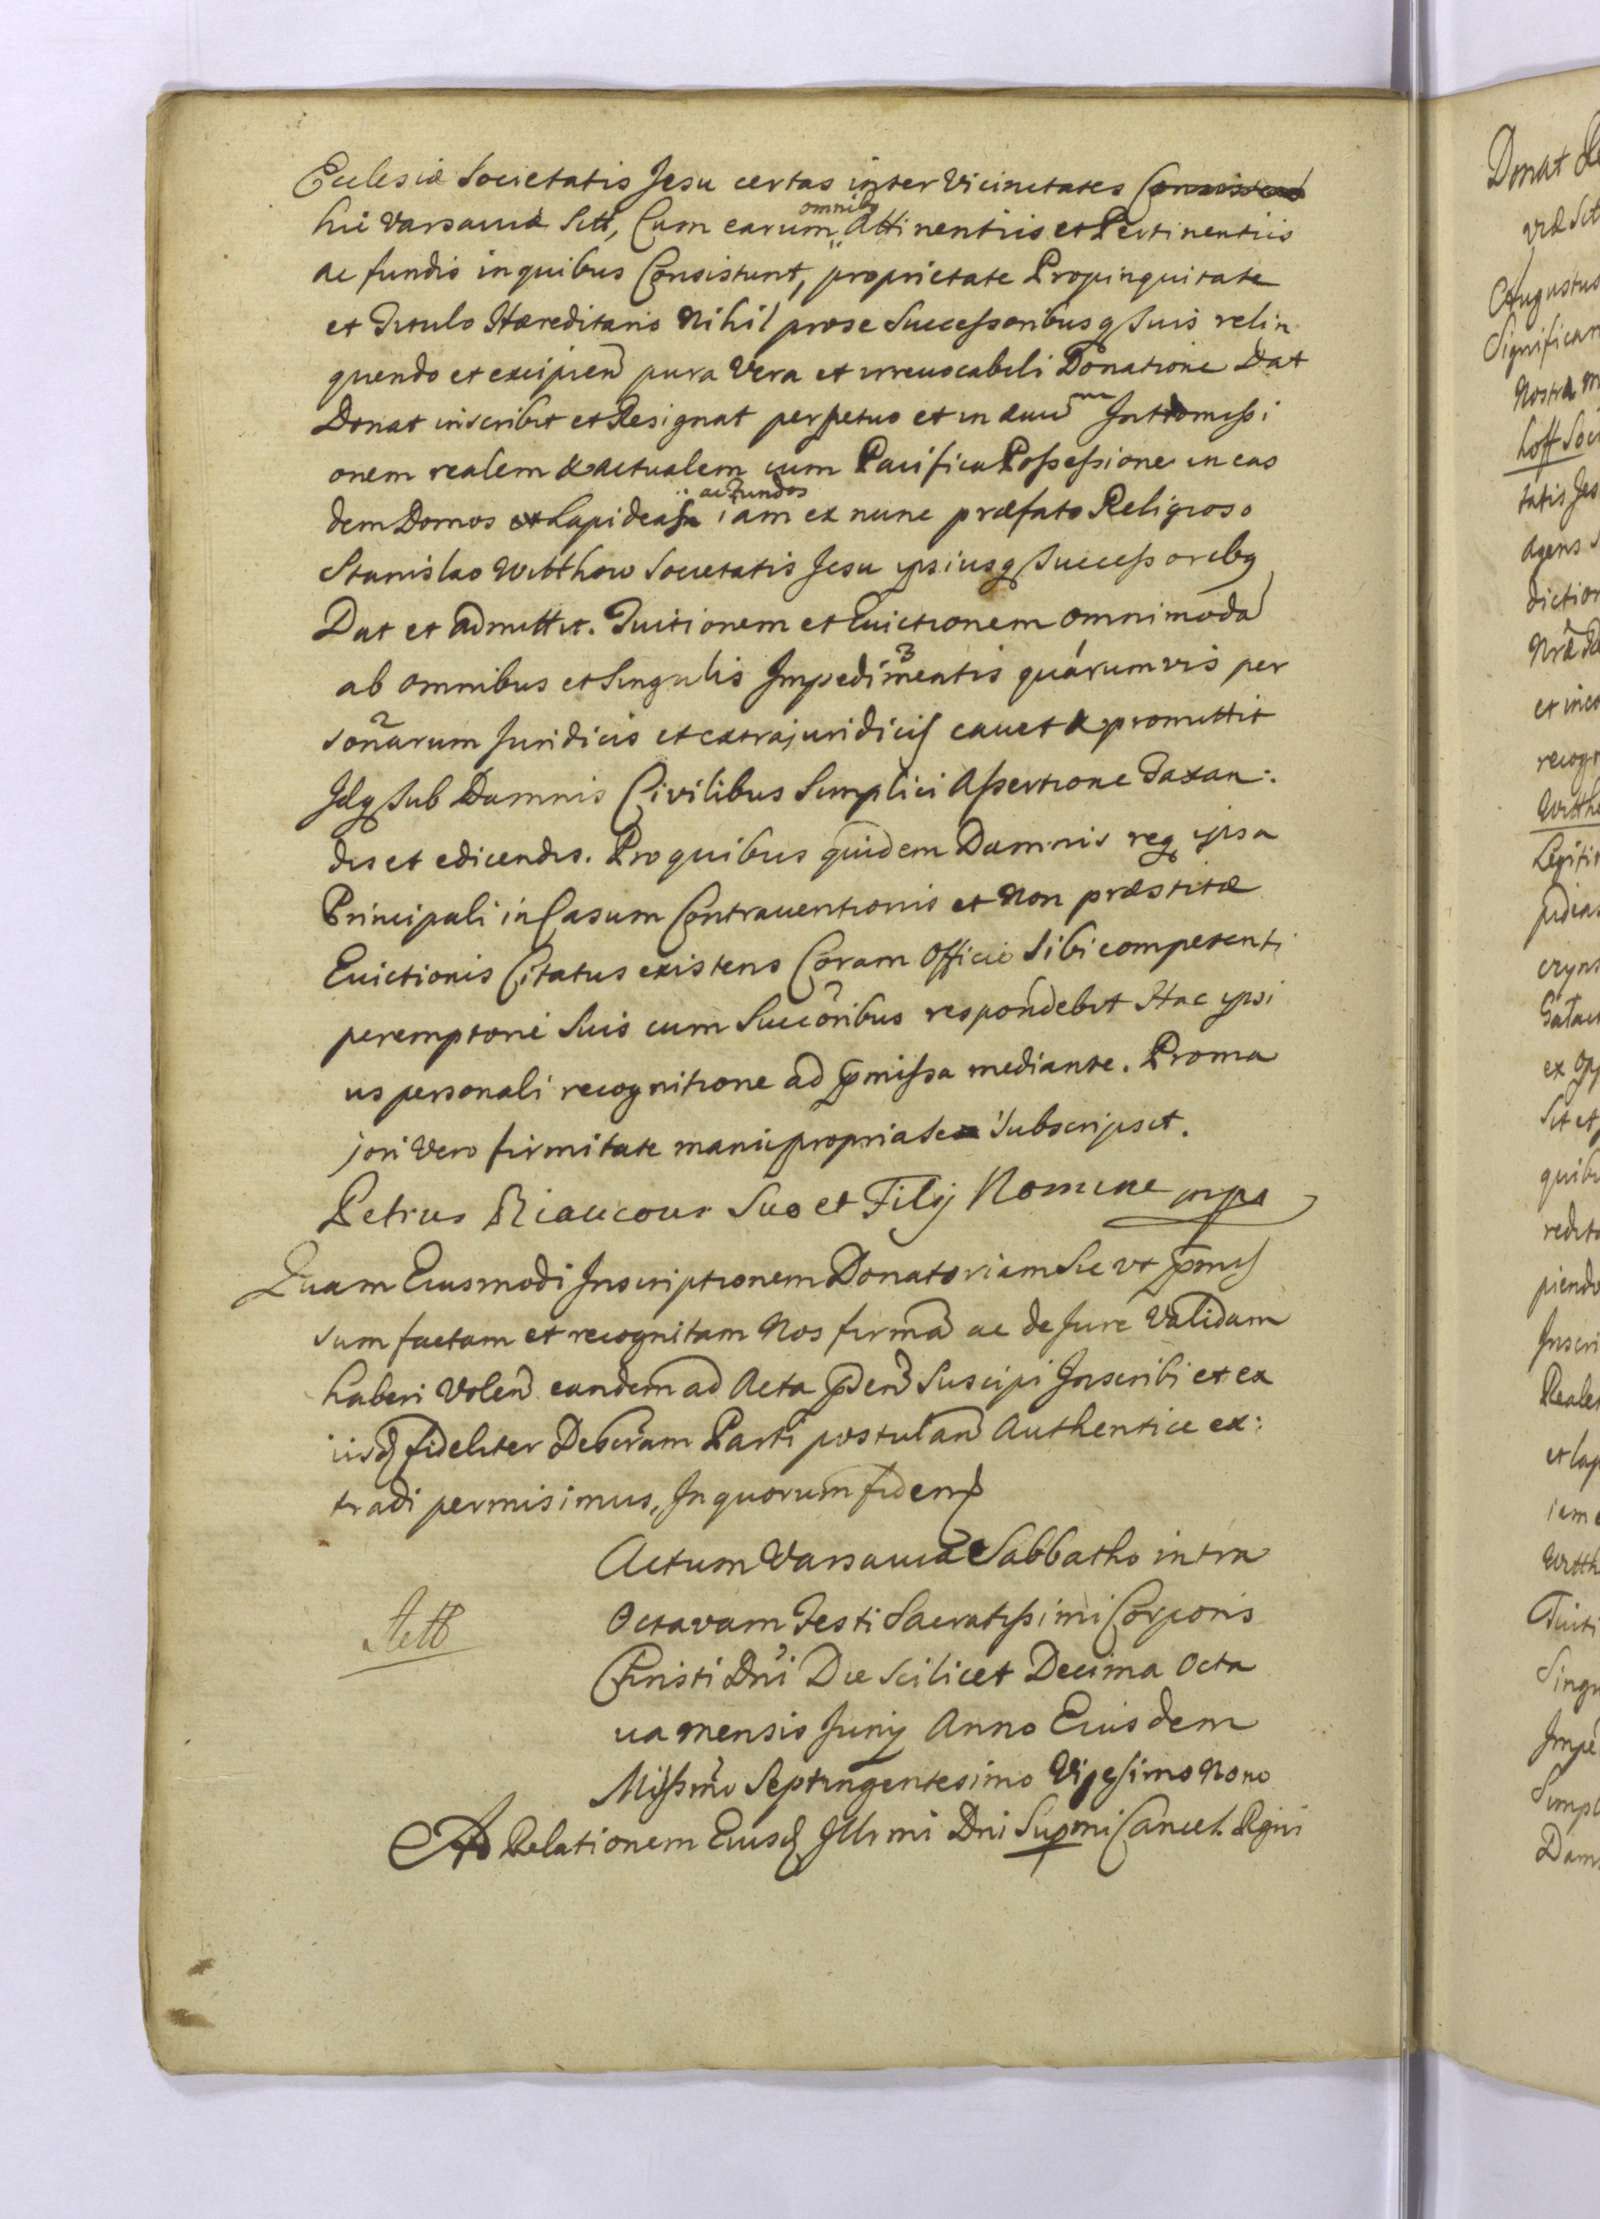 Ecclesiæ Societatis Jesu certas inter Vicinitates
omnibg
hic Varsaviæ Sitt, Cum earum Attinentiis et Pertinentiis
ac fundis in quibus Consistunt, proprietate Propinquitate
et Titulo Hæreditario Nihil pro se Successoribusq suis relin
quendo et excipien pura Vera et irreuocabili Donatione Dat
Donat inscribit et Resignat perpetuo et in æuum Intromissi
onem realem & actualem cum Pacifica Possessione in eas
ac fundos
dem Domos et Lapideas iam ex nunc præfato Religioso
Stanislao Witthow Societatis Jesu ipsiusq Successoribg
Dat et admittit. Tuitionem et Euictionem omnimoda
ab omnibus et Singulis Impedimentis quarumvis per
sonarum Juridicis et extrajuridicis cauet & promittit
Idq sub Damnis Civilibus Simplici Assertione Taxan:
dis et edicendis. Pro quibus quidem Damnis req ipsa
Principali in Casum Contrauentionis et Non præstitæ
Euictionis Citatus existens Coram Officio Sibi competenti
peremptorie Suis cum Succoribus respondebit Hac ipsi
us personali recognitione ad pmissa mediante. Pro ma
jori Vero firmitate manu propria se subscripsit.
Petrus Riaucour Suo et Filij Nomine mpa
Quam Eiusmodi Inscriptionem Donatoriam Sic vt pmis
sum factam et recognitam Nos firma ac de Jure Validam
haberi Volen eandem ad Acta pden Suscipi Inscribi et ex
iisd fideliter Descram Parti postulan Authentice ex:
tradi permisimus, In quorum fidem
Actum Varsauiæ Sabbatho intra
Octavam Festi Sacratissimi Corporis
Christi Dni Die Scilicet Decima Octa
ua mensis Junij Anno Eiusdem
Millsmo Septingentesimo Vigesimo Nono
Ad Relationem Eiusd Illrmi Dni Supmi Cancel. Rgni